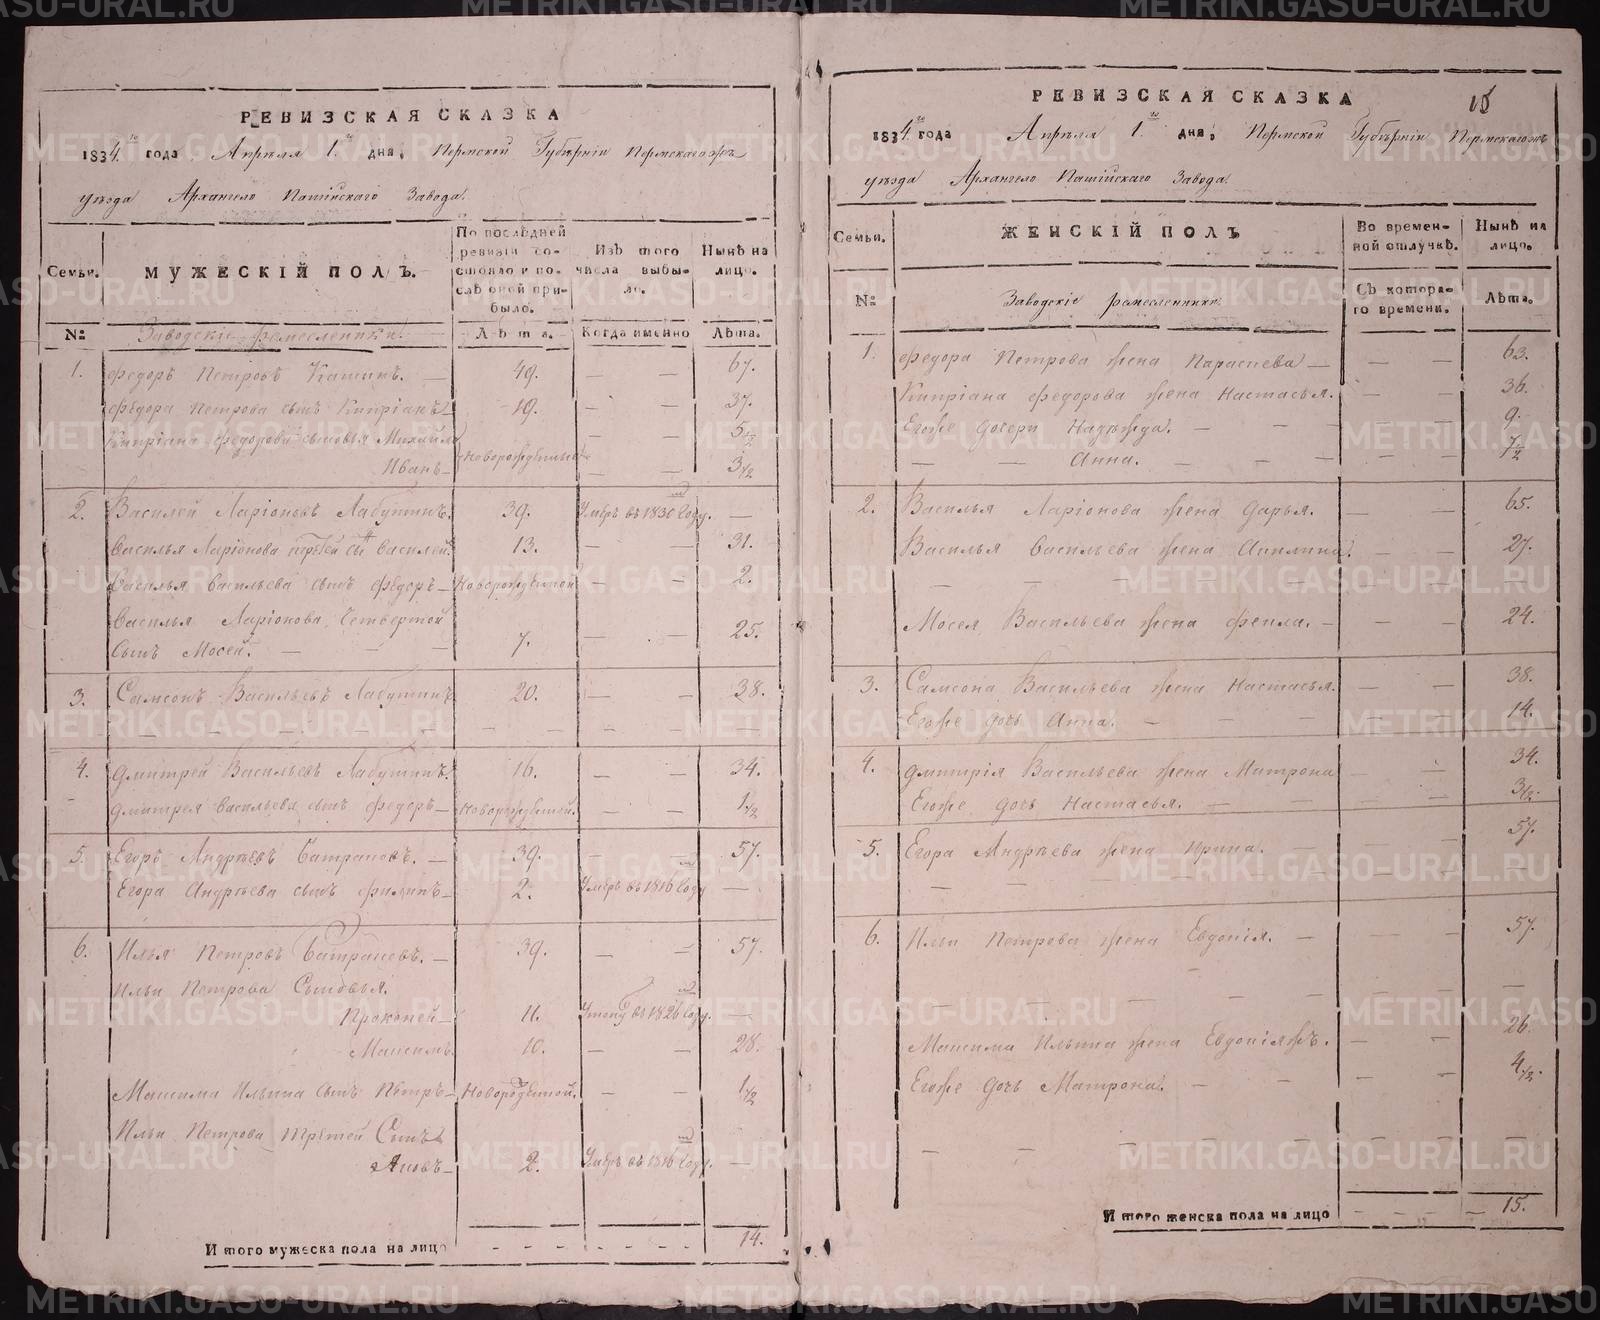 РЕВИЗСКАЯ СКАЗКА
1834.го года Апрѣля 1.го дня, Пермской Губѣрніи Пермскагожъ
уѣзда Архангело Пашійскаго Завода.
Семьи.
МУЖЕСКІЙ ПОЛЪ.
По послѣдней ревизіи состояло и послѣ оной прибыло.
Изъ того числа выбыло.
Нынѣ на лицо.
№
Заводскіе ремесленники.
Лѣта.
Когда именно
Лѣта.
1. Федоръ Петровъ Кашинъ. — 49. — — 67.
Федора Петрова сынъ Кипріанъ 19. — — 37.
Кипріана Федорова сыновья Михайла Новорожденные — — 5 1/2
Иванъ — — — 3 1/2
2. Василей Ларіоновъ Лабутинъ. 39. Умеръ въ 1830 году. —
Василья Ларіонова третей сынъ Василей. 13. — — 31.
Василья Васильева сынъ Федоръ — Новорожденной — — 2.
Василья Ларіонова Четвертой
сынъ Мосей. — — — 7. — — 25.
3. Самсонъ Васильевъ Лабутинъ 20. — — 38.
4. Дмитрей Васильевъ Лабутинъ. 16. — — 34.
Дмитрея Васильева сынъ Федоръ — Новорожденной. — — 1 1/2
5. Егоръ Андрѣевъ Батраковъ. — 39. — — 57.
Егора Андрѣева сынъ Филипъ — 2. Умеръ въ 1816 году —
6. Илья Петровъ Батраковъ. — 39. — — 57.
Ильи Петрова Сыновья.
Прокопей — 11. въ 1826 году. —
Максимъ. 10. — — 28.
Максима Ильина сынъ Петръ — Новорожденной. — — 1 1/2
Ильи Петрова третей Сынъ
Яковъ — 2. Умеръ въ 1816 году. —
Итого мужеска пола на лицо 14.
15
РЕВИЗСКАЯ СКАЗКА
1834.го года Апрѣля 1.го дня, Пермской Губѣрніи Пермскагожъ
уѣзда Архангело Пашійскаго Завода.
Семьи.
ЖЕНСКІЙ ПОЛЪ
Во временной отлучкѣ.
Нынѣ на лицо.
№
Заводскіе ремесленники.
Съ котораго времени.
Лѣта.
1. Федора Петрова жена Параскева — — — 63.
Кипріана Федорова жена Настасья. — — 36.
Егоже дочери Надѣжда. — — — 9.
— — Анна. — — — 7 1/2
2. Василья Ларіонова жена Дарья. — — 65.
Василья Васильева жена Акилина. — — 27.
Мосея Васильева жена Фекла. — — — 24.
3. Самсона Васильева жена Настасья. — — 38.
Егоже дочь Анна. — — — 14.
4. Дмитрія Васильева жена Матрона — — 34.
Егоже дочь Настасья. — — — 3 1/2
5. Егора Андрѣева жена Ирина. — — — 57.
6. Ильи Петрова жена Евдокія. — — — 57.
Максима Ильина жена Евдокіяжъ. — — 26.
Егоже дочь Матрона. — — — 4 1/2
Итого женска пола на лицо 15.
METRIKI.GASO-URAL.RU